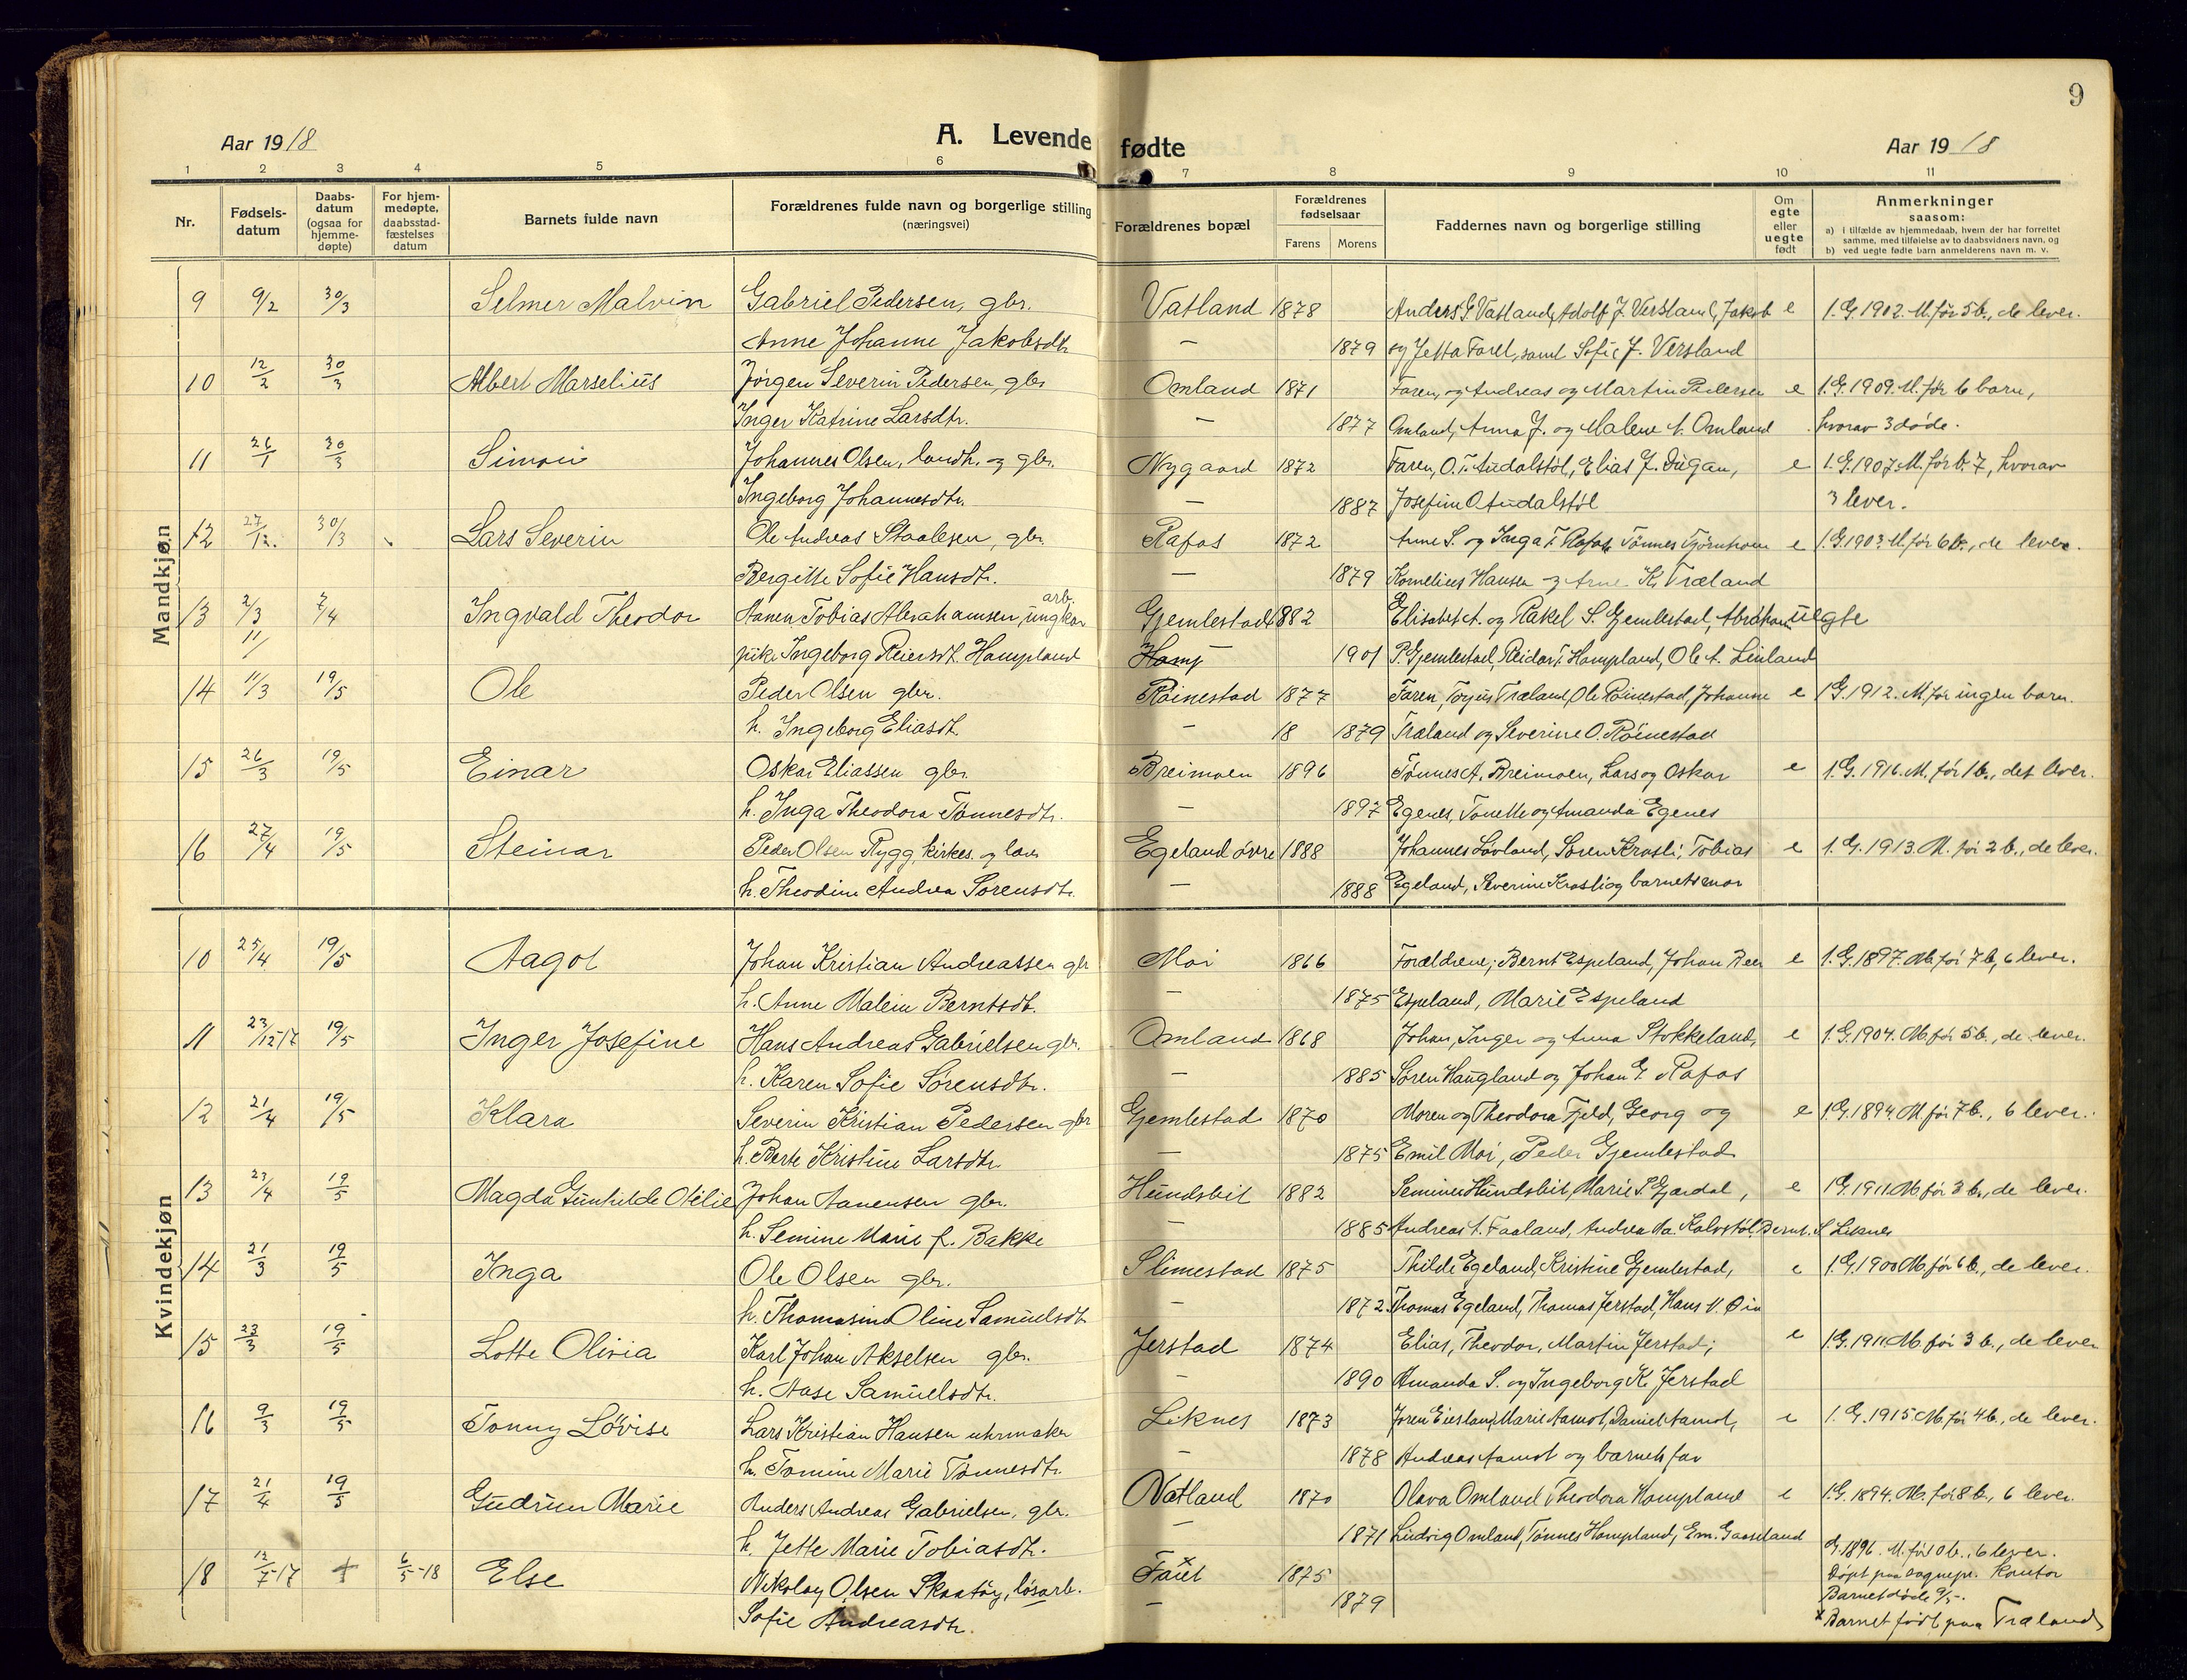 9
Aar 1918 A. Levende fødte Aar 1918
1 2 3 4 5 6 7 8 9 10 11
Nr. Fødsels-datum Daabs-datum (ogsaa for hjemme-døpte) For hjem-medøpte, daabsstad-fæstelses datum Barnets fulde navn Forældrenes fulde navn og borgerlige stilling (næringsvei) Forældrenes bopæl Forældrenes fødselsaar Farens Morens Faddernes navn og borgerlige stilling Om egte eller uegte født Anmerkninger saasom: a) i tilfælde av hjemmedaab, hvem der har forrettet samme, med tilføielse av to daabsvidners navn, og b) ved uegte fødte barn anmelderens navn m. v.
Mandkjøn
9 9/2 30/3 Selmer Malvin Gabriel Pedersen, gbr. Vatland 1878 Anders G. Vatland, Adolf J. Versland, Jakob e 1. G. 1902. M. før 5 b., de lever.
Anne Johanne Jakobsdtr. — 1879 og Jetta Faret, samt Sofie J. Versland
10 12/2 30/3 Albert Marselius Jørgen Severin Pedersen, gbr. Omland 1871 Faren, og Andreas og Martin Pedersen e 1. G. 1909. M. før 6 barn,
Inger Katrine Larsdtr. — 1877 Omland, Anna J. og Malene A. Omland hvorav 3 døde.
11 26/1 30/3 Simon Johannes Olsen, landh. og gbr. Nygaard 1872 Faren, O. T. Audalstøl, Elias J. Dugan, e 1. G. 1907. M. før b. 7, hvorav
Ingeborg Johannesdtr. — 1887 Josefine O. Audalstøl 3 lever.
12 27/12. 30/3 Lars Severin Ole Andreas Staalesen, gbr. Rafos 1872 Anne S. og Inga T. Rafos, Tønnes Tjørnhom e 1. G. 1903. M. før 6 b., de lever.
Bergitte Sofie Hansdtr. — 1879 Kornelius Hansen og Arne K. Træland
13 2/3 7/4 Ingvald Theodor Aanen Tobias Abrahamsen, ungkar arb. Gjemlestad 1882 Elisabet A. og Rakel S. Gjemlestad, Abraham uegte
11/ pike Ingeborg Reiersdt. Hompland Homp 1901 P. Gjemlestad, Reidar T. Hompland, Ole A. Linland
14 11/3 19/5 Ole Peder Olsen gbr. Røinestad 1877 Faren, Torjus Træland, Ole Røinestad, Johanne e 1 G. 1912. M. før ingen barn.
h. Ingeborg Eliasdt. — 18 1879 Træland og Severine O. Røinestad
15 26/3 19/5 Einar Oskar Eliassen gbr. Breimoen 1896 Tønnes A. Breimoen, Lars og Oskar e 1. G. 1916. M. før 1 b., det lever.
h. Inga Theodora Tønnesdtr. — 1897 Egenes, Tonette og Amanda Egenes
16 27/4 19/5 Steinar Peder Olsen Rygg, kirkes. og lær. Egeland øvre 1888 Johannes Løvland, Søren Krosli, Tobias e 1. G. 1913. M. før 2 b., de lever.
h. Theodine Andrea Sørensdtr. — 1888 Egeland, Severine Krosli og barnets mor
Kvindekjøn
10 25/4 19/5 Aagot Johan Kristian Andreassen gbr Moi 1866 Forældrene; Bernt Espeland, Johan Reer e 1. G. 1897. M. før 7 b., 6 lever.
h. Anne Malein Berntsdt. — 1875 Espeland, Marie Espeland
11 23/12 17 19/5 Inger Josefine Hans Andreas Gabrielsen gbr. Omland 1868 Johan, Inger og Anna Stokkeland, e 1. G. 1904. M. før 5 b., de lever.
h. Karen Sofie Sørensdtr. — 1885 Søren Haugland og Johan G. Rafos
12 21/4 19/5 Klara Severin Kristian Pedersen gbr Gjemlestad 1870 Moren og Theodora Fjeld, Georg og e 1. G. 1894 M. før 7 b., 6 lever.
h. Berte Kristine Larsdtr. — 1875 Emil Moi, Peder Gjemlestad
13 23/4 19/5 Magda Gunhilde Otelie Johan Aanensen gbr. Hundsbit 1882 Semine Hundsbit, Marie P. Gjærdal, e 1 G. 1911. M. før 3 b., de lever.
h. Semine Marie f. Bakke — 1885 Andreas A. Faaland, Andrea Aa. Kalvstøl, Bernt. S. Liknes
14 21/3 19/5 Inga Ole Olsen gbr. Slimestad 1875 Thilde Egeland, Kristine Gjemlestad, e 1. G. 1900 M. før 6 b., de lever.
h. Thomasine Oline Samuelsdtr — 1872. Thomas Egeland, Thomas Jerstad, Hans N. Øie
15 23/3 19/5 Lotte Olivia Karl Johan Akselsen gbr. Jerstad 1874 Elias, Theodor, Martin Jerstad; e 1 G. 1911. M. før 3 b., de lever
h. Aase Samuelsdtr. — 1890 Amanda S. og Ingeborg K. Jerstad
16 9/3 19/5 Tonny Lovise Lars Kristian Hansen uhrmaker Liknes 1873 Joren Eiesland, Marie Aamot, Daniel Aamot, e 1. G. 1915 M. før 4 b., de lever.
h. Tomine Marie Tønnesdtr. — 1878 Andreas Aamot og barnets far
17 21/4 19/5 Gudrun Marie Anders Andreas Gabrielsen, gbr. Vatland 1870 Olava Omland, Theodora Hompland e 1. G. 1894. M. før 8 b., 6 lever.
h. Jette Marie Tobiasdtr. — 1871 Ludvig Omland, Tønnes Hompland, Em. Gaaseland
18 12/7-17 6/5-18 Else Nikolay Olsen Skaatøy, løsarb. Faret x 1875 G. 1896. M. før 10 b., 6 lever.
Sofie Andreasdtr. — 1879 Døpt paa sognepr. kontor
Barnet døde 9/5-.
x Barnet født paa Træland